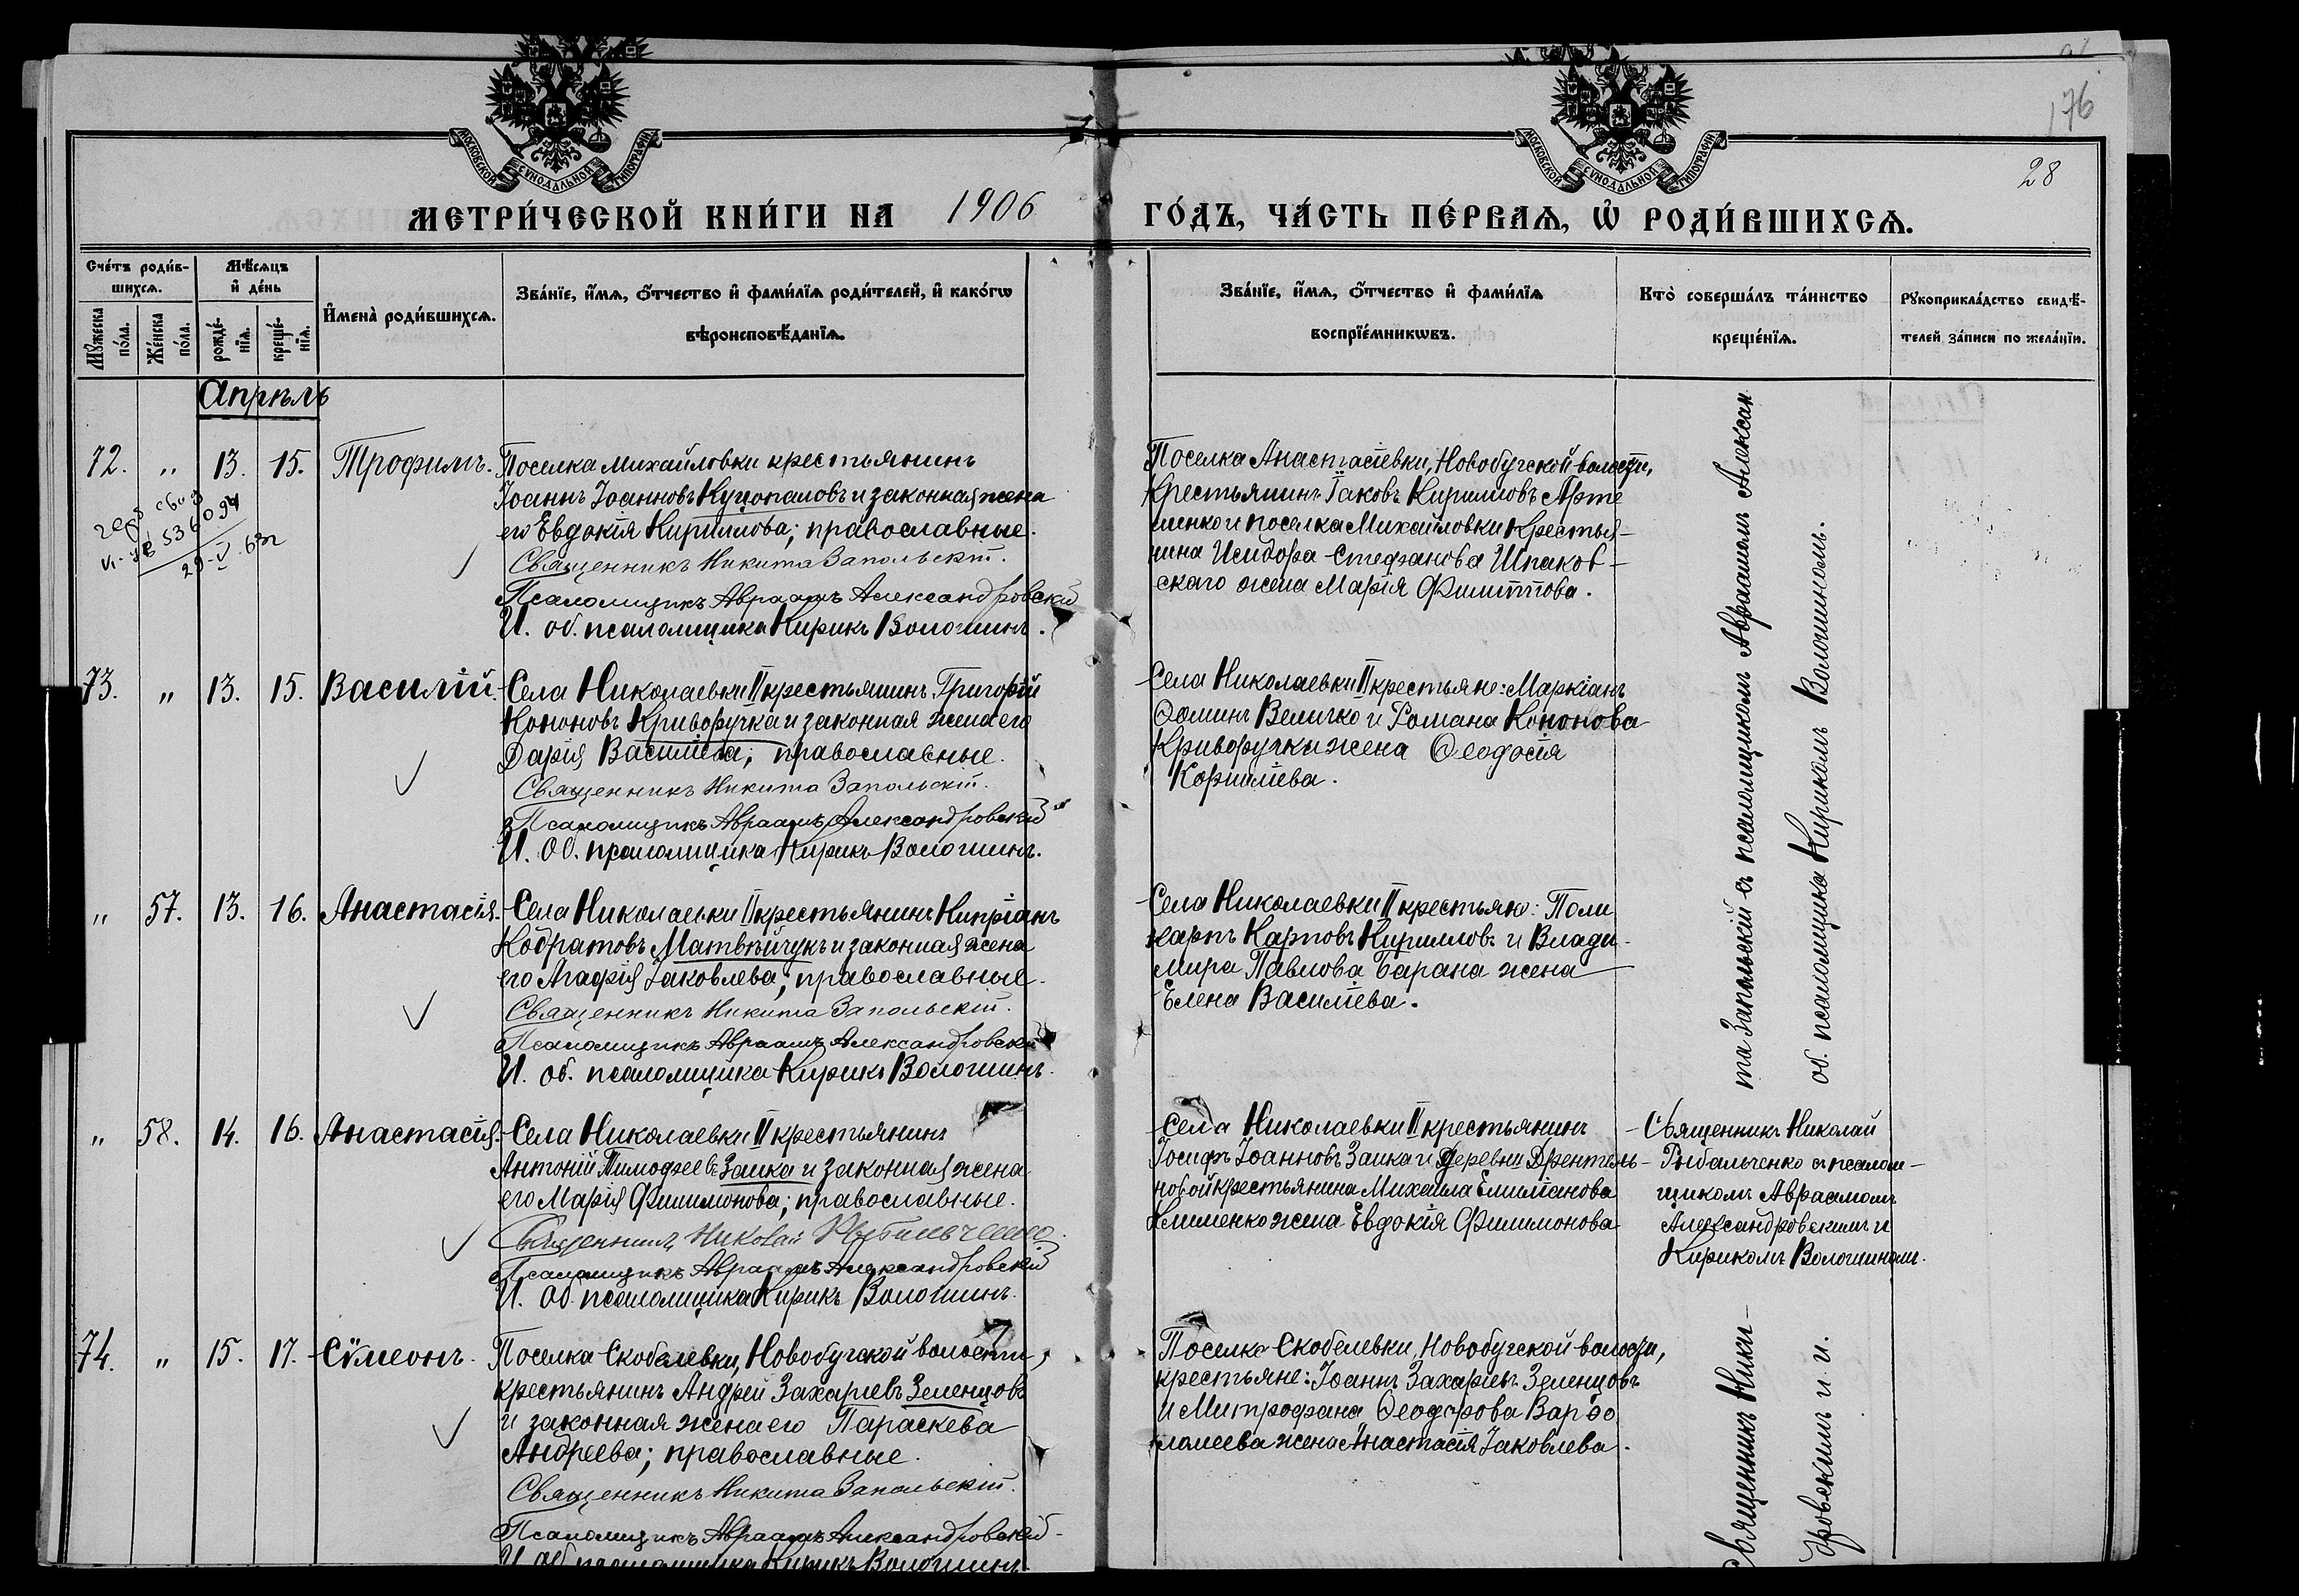 176
28
МОСКОВСКОЙ СУНОДАЛЬНОЙ ТИПОГРАФІИ
МОСКОВСКОЙ СУНОДАЛЬНОЙ ТИПОГРАФІИ
МЕТРИ́ЧЕСКОЙ КНИ́ГИ НА 1906 ГО́ДЪ, ЧА́СТЬ ПЕ́РВАѦ, Ѡ҆ РОДИ́ВШИХСѦ.
Сче́тъ роди́в-
шихсѧ.
Мꙋ́жеска по́ла.
Же́нска по́ла.
Мѣ́сѧцъ
и҆ де́нь
рожде́-
нїѧ.
креще́-
нїѧ.
И҆мена̀ роди́вшихсѧ.
Зва́нїе, и҆́мѧ, ѻ҆́тчество и҆ фами́лїѧ роди́телей, и҆ како́гѡ
вѣроисповѣ́данїѧ.
Зва́нїе, и҆́мѧ, ѻ҆́тчество и҆ фами́лїѧ
воспрїе́мникѡвъ.
Кто̀ соверша́лъ та́инство
креще́нїѧ.
Рꙋкоприкла́дство свидѣ́-
телей за́писи по жела́нїю.
Апрѣль
72. " 13. 15. Трофимъ.
Поселка Михайловки крестьянинъ
Іоаннъ Іоанновъ Куцопаловъ и законная жена
его Евдокія Кириллова; православные.
Священникъ Никита Запольскій.
Псаломщикъ Авраамъ Александровскій
И. об. псаломщика Кирикъ Волошинъ.
536094
29-V.63г
Поселка Анастасіевки, Новобугской волости,
крестьянинъ Іаковъ Кирилловъ Арте
менко и поселка Михайловки крестья-
нина Исидора Стефанова Шпаков-
скаго жена Марія Филиппова.
73. " 13. 15. Василій.
Села Николаевки II крестьянинъ Григорій
Кононовъ Криворучка и законная жена его
Дарія Василіева; православные.
Священникъ Никита Запольскій.
Псаломщикъ Авраамъ Александровскій
И. Об. псаломщика Кирикъ Волошинъ.
Села Николаевки II крестьяне: Маркіанъ
Ѳоминъ Величко и Романа Кононова
Криворучки жена Ѳеодосія
Корниліева.
" 57. 13. 16. Анастасія.
Села Николаевки II крестьянинъ Кипріанъ
Кодратовъ Матвѣйчукъ и законная жена
его Агафія Іаковлева; православные.
Священникъ Никита Запольскій.
Псаломщикъ Авраамъ Александровскій
И. об. псаломщика Кирикъ Волошинъ.
Села Николаевки II крестьяне: Поли
карпъ Карповъ Кирилловъ и Влади-
мира Павлова Барана жена
Елена Василіева.
" 58. 14. 16. Анастасія.
Села Николаевки II крестьянинъ
Антоній Тимофеевъ Заика и законная жена
его Марія Филимонова; православные.
Священникъ Николай Рыбальченко
Псаломщикъ Авраамъ Александровскій
И. Об. псаломщика Кирикъ Волошинъ.
Села Николаевки II крестьянинъ
Іосифъ Іоанновъ Заика и деревни Дрентель-
новой крестьянина Михаила Емиліанова
Клименко жена Евдокія Филимонова
Священникъ Николай
Рыбальченко съ псалом-
щикомъ Авраамомъ
Александровскимъ и
Кирикомъ Волошиномъ.
74. " 15. 17. Сѵмеонъ.
Поселка Скобелевки, Новобугской волости,
крестьянинъ Андрей Захаріевъ Зеленцовъ
и законная жена его Параскева
Андреева; православные.
Священникъ Никита Запольскій.
Псаломщикъ Авраамъ Александровскій
И. об. псаломщика Кирикъ Волошинъ.
Поселка Скобелевки, Новобугской волости,
крестьяне: Іоаннъ Захаріевъ Зеленцовъ
и Митрофана Ѳеодорова Варѳо
ломеева жена Анастасія Іаковлева.
Священникъ Ники-
та Запольскій съ псаломщикомъ Авраамомъ Алексан
дровскимъ и и.
об. псаломщика Кирикомъ Волошиномъ.